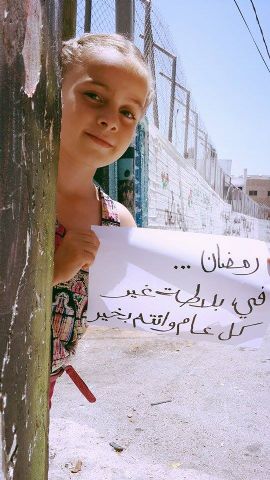 رمضان ...
في بلاطة غير
كل عام وانتم بخير